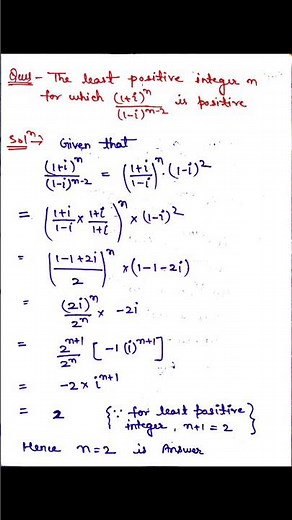 Ques - The least positive integer n
for which (1+i)^n / (1-i)^(n-2) is positive
Solⁿ→ Given that
(1+i)^n / (1-i)^(n-2) = ((1+i)/(1-i))^n · (1-i)^2
= ((1+i)/(1-i) × (1+i)/(1+i))^n × (1-i)^2
= ((1-1+2i)/2)^n × (1-1-2i)
= (2i)^n / 2^n × -2i
= 2^(n+1) / 2^n [-1(i)^(n+1)]
= -2 × i^(n+1)
= 2 {∵ for least positive
integer, n+1 = 2}
Hence n=2 is Answer